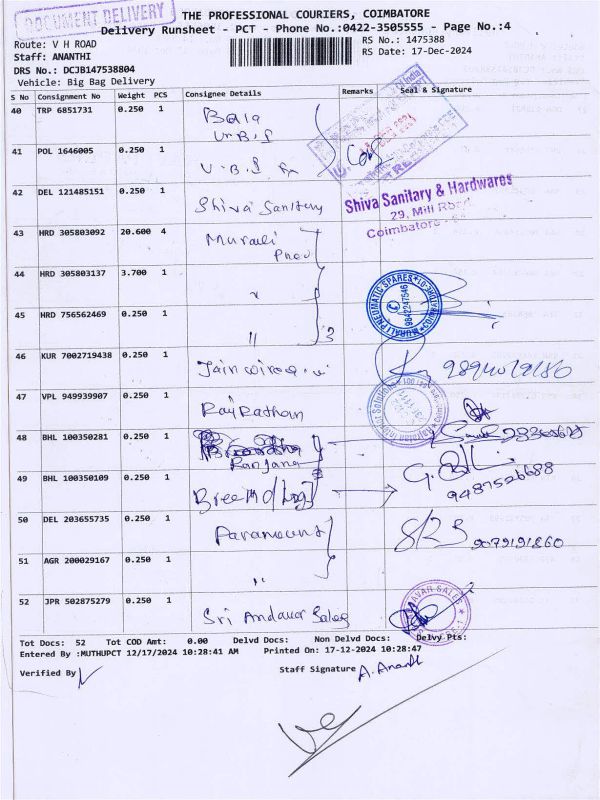 DOCUMENT DELIVERY
THE PROFESSIONAL COURIERS, COIMBATORE
Delivery Runsheet - PCT - Phone No.:0422-3505555 - Page No.:4
Route: V H ROAD
RS No.: 1475388
Staff: ANANTHI
RS Date: 17-Dec-2024
DRS No.: DCJB147538804
Vehicle: Big Bag Delivery
S No Consignment No Weight PCS Consignee Details Remarks Seal & Signature
40 TRP 6851731 0.250 1 Bala
41 POL 1646005 0.250 1
42 DEL 121485151 0.250 1 Shiva Sanitary
Shiva Sanitary & Hardwares
29, Mill Road
Coimbatore
43 HRD 305803092 20.600 4 Murali
Pneu
44 HRD 305803137 3.700 1 "
MURALI PNEUMATIC SPARES
9842247546
45 HRD 756562469 0.250 1 " 3
46 KUR 7002719438 0.250 1
47 VPL 949939907 0.250 1 Raj Rathan
48 BHL 100350281 0.250 1
Ranjana
49 BHL 100350109 0.250 1
9487526688
50 DEL 203655735 0.250 1 Paramount
9079191860
51 AGR 200029167 0.250 1 "
52 JPR 502875279 0.250 1 Sri Andavar Sales
Tot Docs: 52 Tot COD Amt: 0.00 Delvd Docs: Non Delvd Docs: Delvy Pts:
Entered By :MUTHUPCT 12/17/2024 10:28:41 AM Printed On: 17-12-2024 10:28:47
Verified By
Staff Signature A. Ananthi